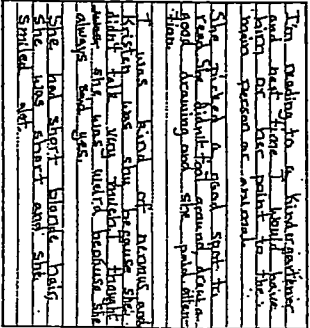 I'm reading to a kindergartener
and next time I would have
him or her point to the
main person or animal.
She picked a good spot to
read she didn't fool around, drew a
good drawing and she paid atten-
tion.
I was kind of nervous and
Kristen was shy because she
didn't talk very much I thought
she was weird because she
always said yes.
She had short blonde hair,
she was short and she
smiled alot.